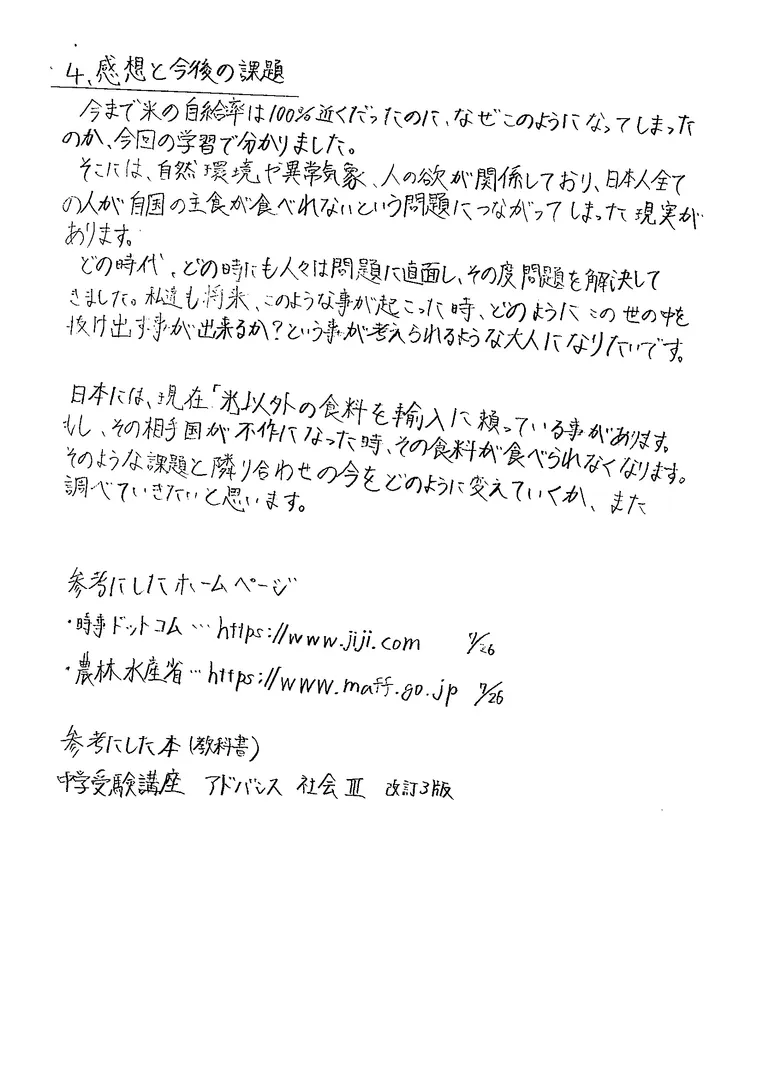 4、感想と今後の課題
今まで米の自給率は100%近くだったのに、なぜこのようになってしまった
のか、今回の学習で分かりました。
そこには、自然環境や異常気象、人の欲が関係しており、日本人全て
の人が自国の主食が食べれないという問題につながってしまった現実が
あります。
どの時代、どの時にも人々は問題に直面し、その度問題を解決して
きました。私達も将来、このような事が起こった時、どのようにこの世の中を
抜け出す事が出来るか?という事が考えられるような大人になりたいです。
日本には、現在「米」以外の食料を輸入に頼っている事があります。
もし、その相手国が不作になった時、その食料が食べられなくなります。
そのような課題と隣り合わせの今をどのように変えていくか、また
調べていきたいと思います。
参考にしたホームページ
・時事ドットコム…https://www.jiji.com 7/26
・農林水産省…https://www.maff.go.jp 7/26
参考にした本(教科書)
中学受験講座 アドバンス 社会Ⅲ 改訂3版